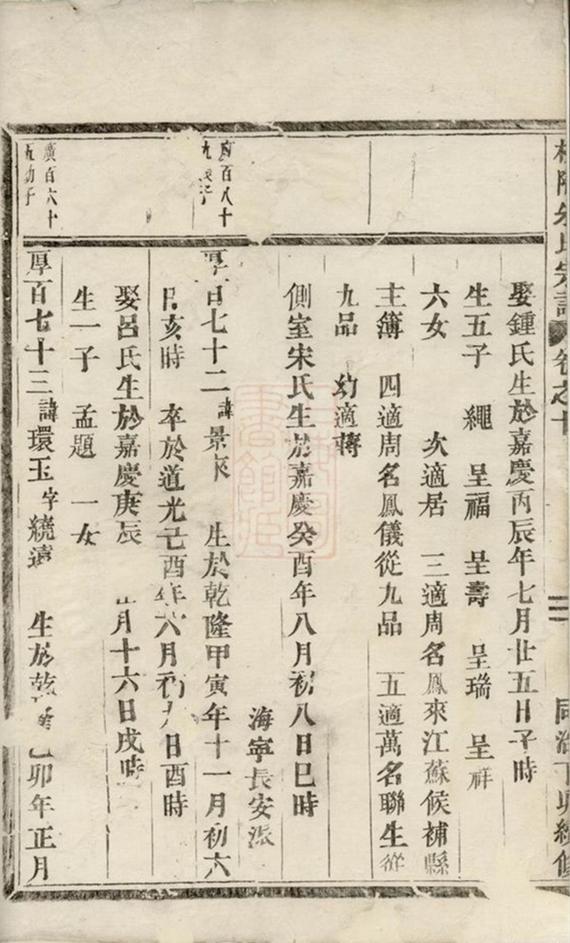 宗譜 卷之十 同治丁卯續修
娶鍾氏生於嘉慶丙辰年七月廿五日子時
生五子 繩 呈福 呈壽 呈瑞 呈祥
六女 次適居 三適周名鳳來江蘇候補縣
主簿 四適周名鳳儀從九品 五適萬名聯生從
九品 幼適蔣
側室宋氏生於嘉慶癸酉年八月初八日巳時
海寧長安派
百八十
厚百七十二 諱景 生於乾隆甲寅年十一月初六
日亥時 卒於道光己酉年六月初九日酉時
娶呂氏生於嘉慶庚辰 月十六日戌時
生一子 孟題 一女
廣百六十
九幼子
厚百七十三 諱環玉 字繞遠 生於乾隆乙卯年正月